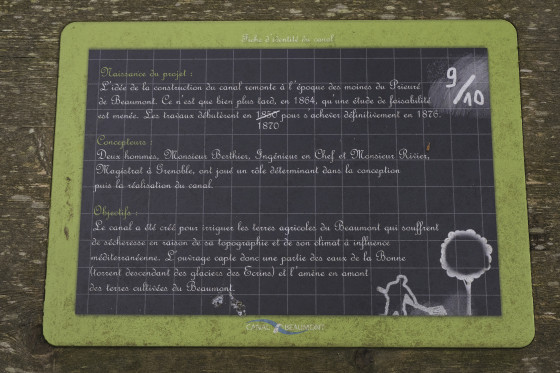 Fiche d'identité du canal
Naissance du projet :
L'idée de la construction du canal remonte à l'époque des moines du Prieuré
de Beaumont. Ce n'est que bien plus tard, en 1864, qu'une étude de faisabilité
est menée. Les travaux débutèrent en 1850 pour s'achever définitivement en 1876.
1870
9/10
Concepteurs :
Deux hommes, Monsieur Berthier, Ingénieur en Chef et Monsieur Rivier,
Magistrat à Grenoble, ont joué un rôle déterminant dans la conception
puis la réalisation du canal.
Objectifs :
Le canal a été créé pour irriguer les terres agricoles du Beaumont qui souffrent
de sécheresse en raison de sa topographie et de son climat à influence
méditerranéenne. L'ouvrage capte donc une partie des eaux de la Bonne
(torrent descendant des glaciers des Ecrins) et l'amène en amont
des terres cultivées du Beaumont.
CANAL BEAUMONT